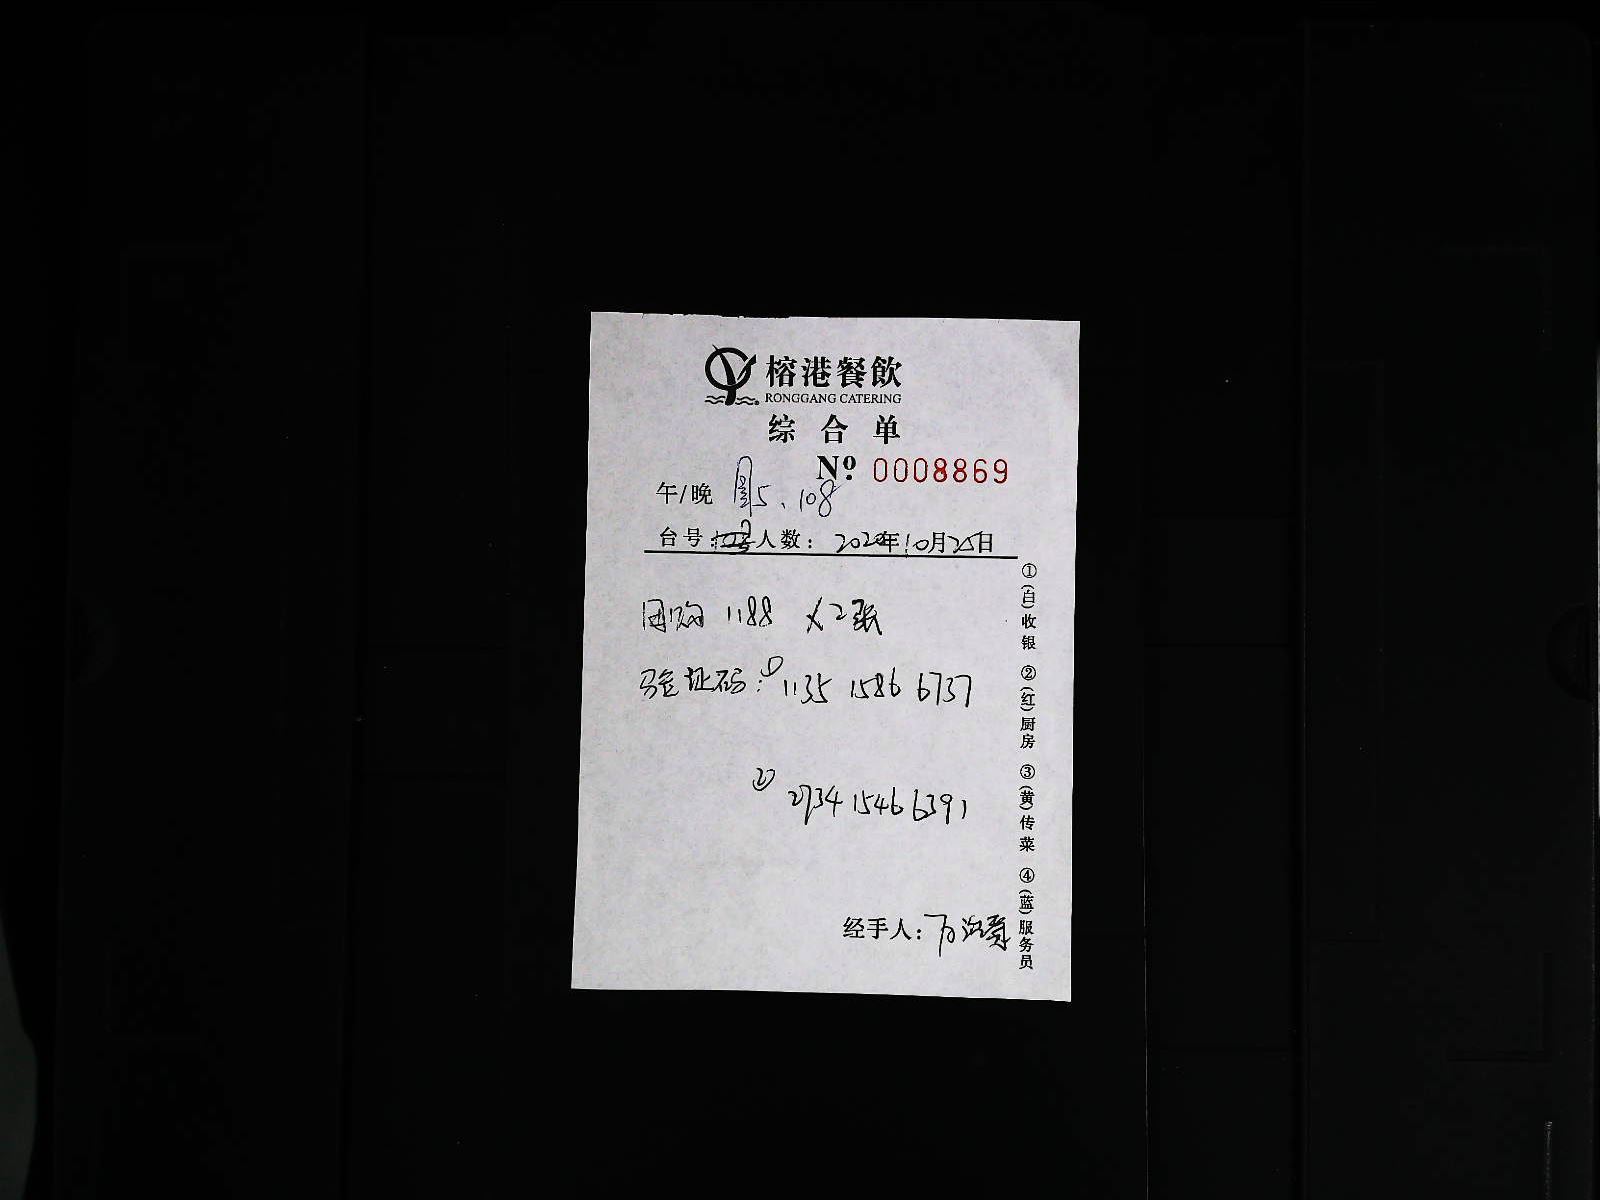 榕港餐飲
RONGGANG CATERING
综合单
Nº 0008869
午/晚 5、108
台号 人数: 2020年10月25日
团购 1188 X2张
验证码:① 1135 1586 6737
② 2734 1546 6391
经手人:
①(白)收银 ②(红)厨房 ③(黄)传菜 ④(蓝)服务员